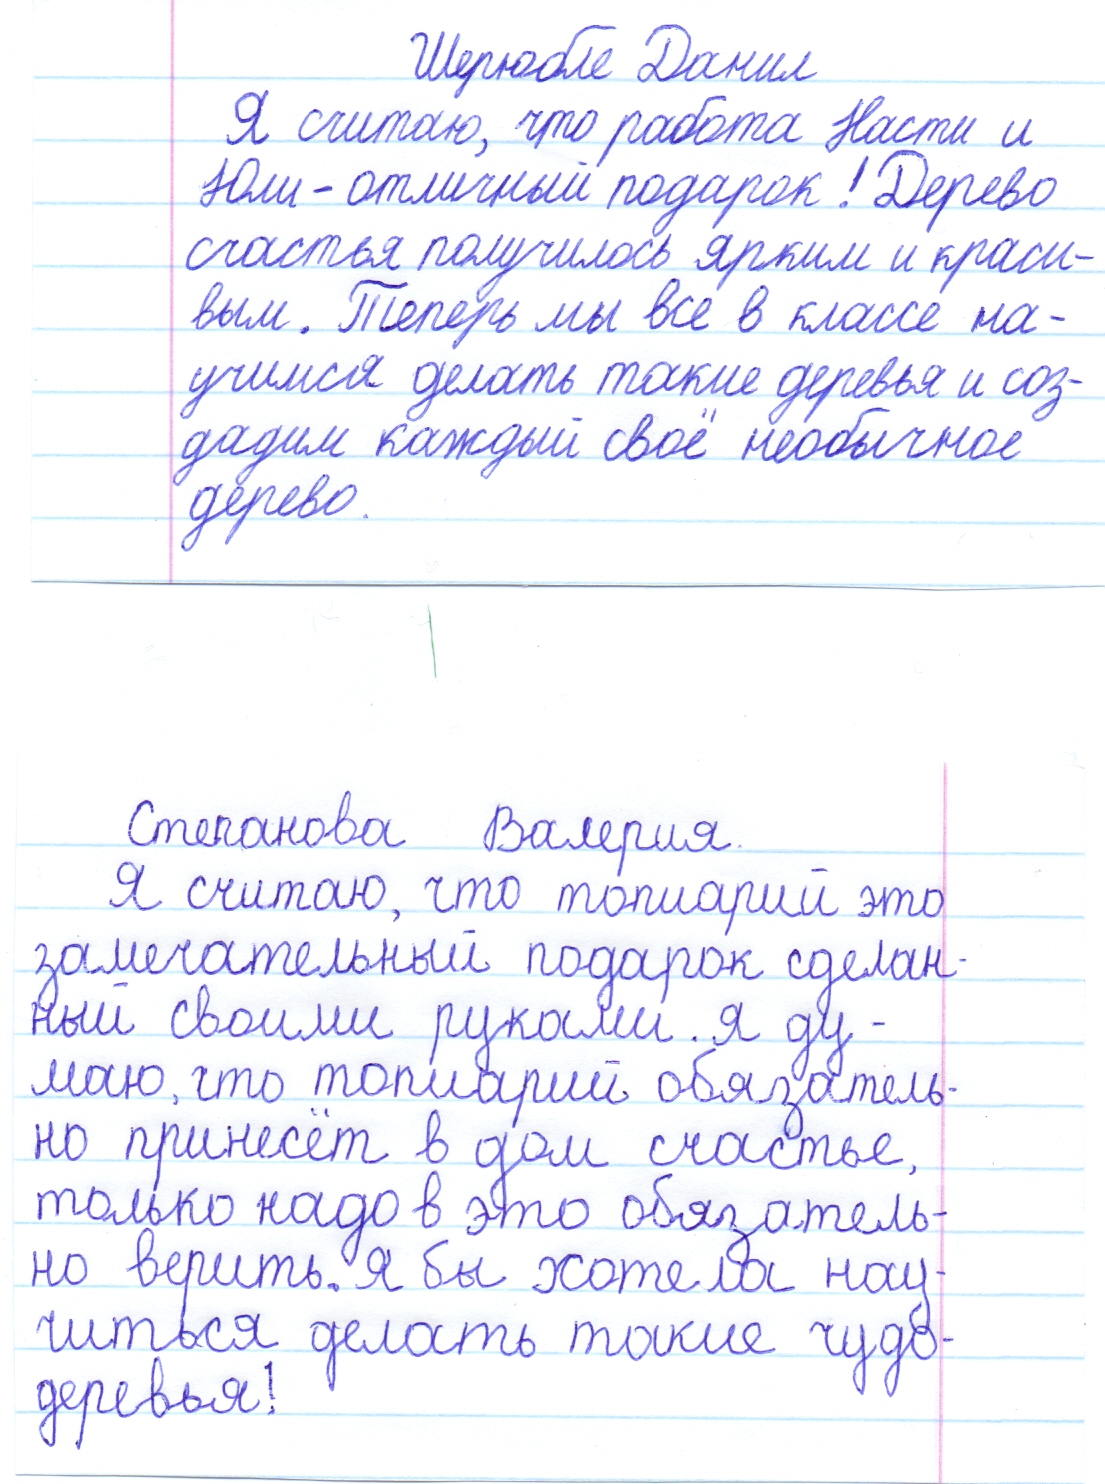 Шерюбле Данил
Я считаю, что работа Насти и
Юли - отличный подарок! Дерево
счастья получилось ярким и краси-
вым. Теперь мы все в классе на-
учимся делать такие деревья и соз-
дадим каждый своё необычное
дерево.
Степанова Валерия.
Я считаю, что топиарий это
замечательный подарок сделан-
ный своими руками. Я ду-
маю, что топиарий обязатель-
но принесёт в дом счастье,
только надо в это обязатель-
но верить. Я бы хотела нау-
читься делать такие чудо-
деревья!